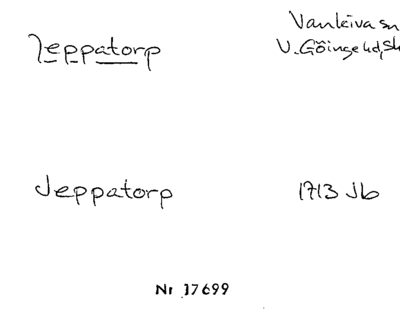 Jeppatorp
Vankiva sn
V. Göinge hd, Sk
Jeppatorp
1713 Jb
Nr 17699